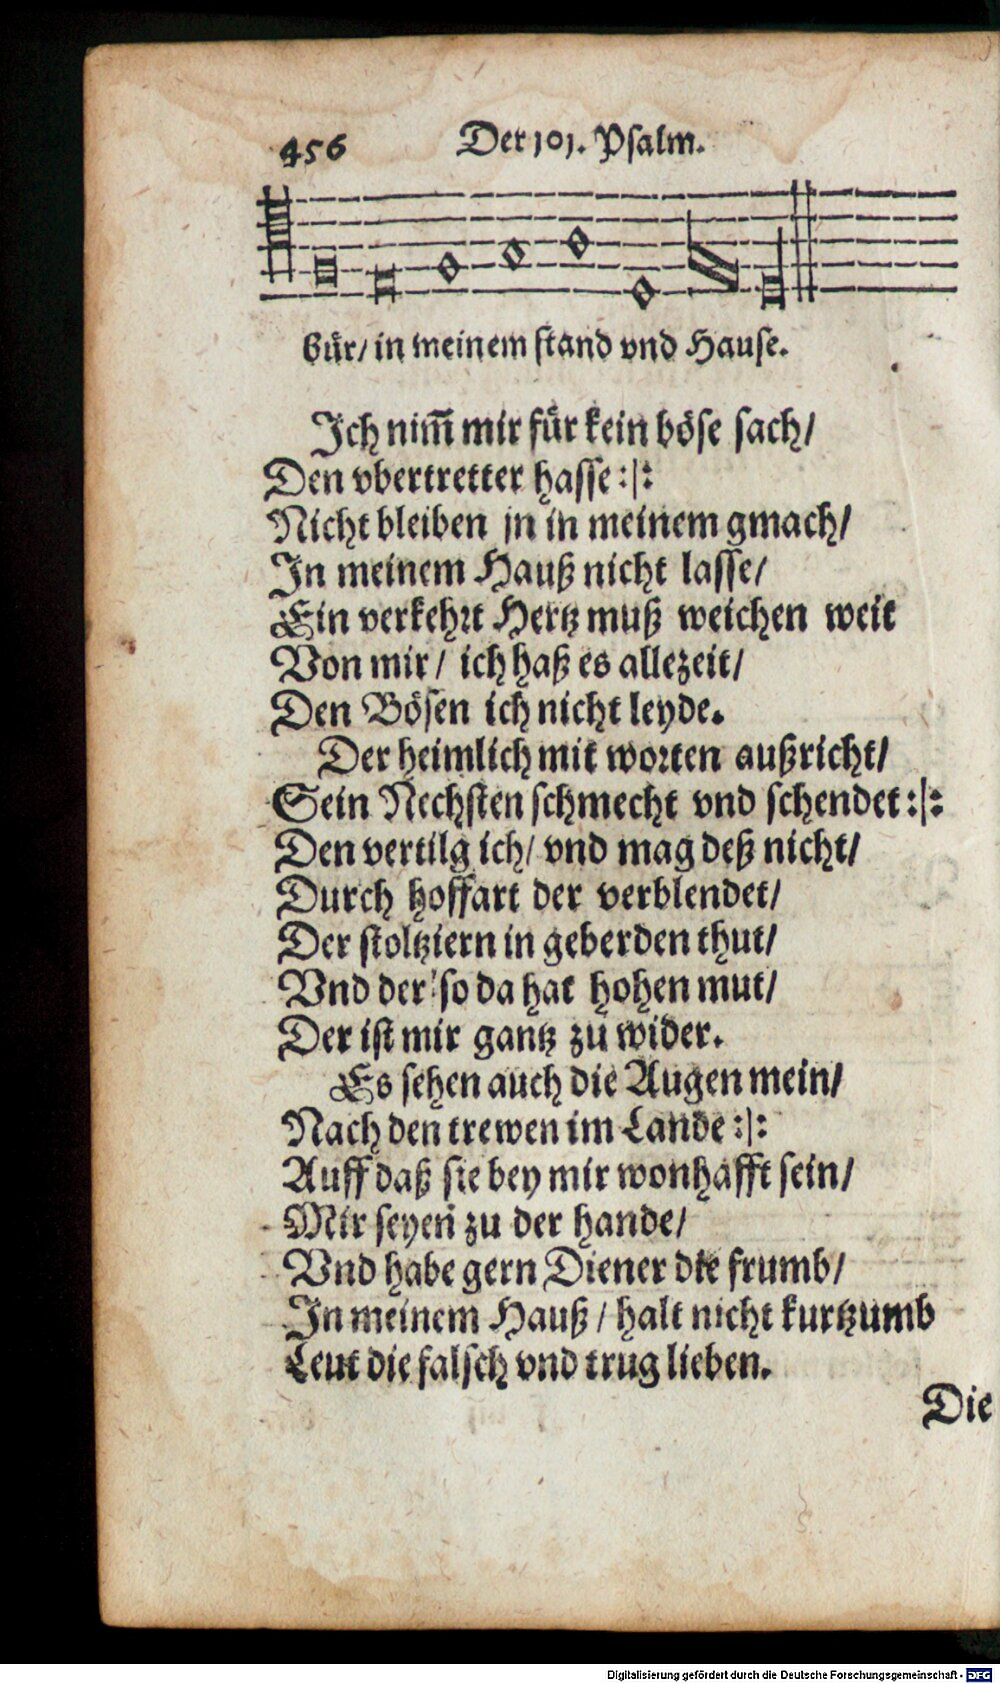 456 Der 101. Psalm.
bür/ in meinem stand vnd Hause.
Ich nim̄ mir für kein böse sach/
Den vbertretter hasse :|:
Nicht bleiben jn in meinem gmach/
In meinem Hauß nicht lasse/
Ein verkehrt Hertz muß weichen weit
Von mir/ ich haß es allezeit/
Den Bösen ich nicht leyde.
Der heimlich mit worten außricht/
Sein Nechsten schmecht vnd schendet :|:
Den vertilg ich/ vnd mag deß nicht/
Durch hoffart der verblendet/
Der stoltziern in geberden thut/
Vnd der/ so da hat hohen mut/
Der ist mir gantz zu wider.
Es sehen auch die Augen mein/
Nach den trewen im Lande :|:
Auff daß sie bey mir wonhafft sein/
Mir seyen zu der hande/
Vnd habe gern Diener die frumb/
In meinem Hauß/ halt nicht kurtzumb
Leut die falsch vnd trug lieben.
Die
Digitalisierung gefördert durch die Deutsche Forschungsgemeinschaft - DFG